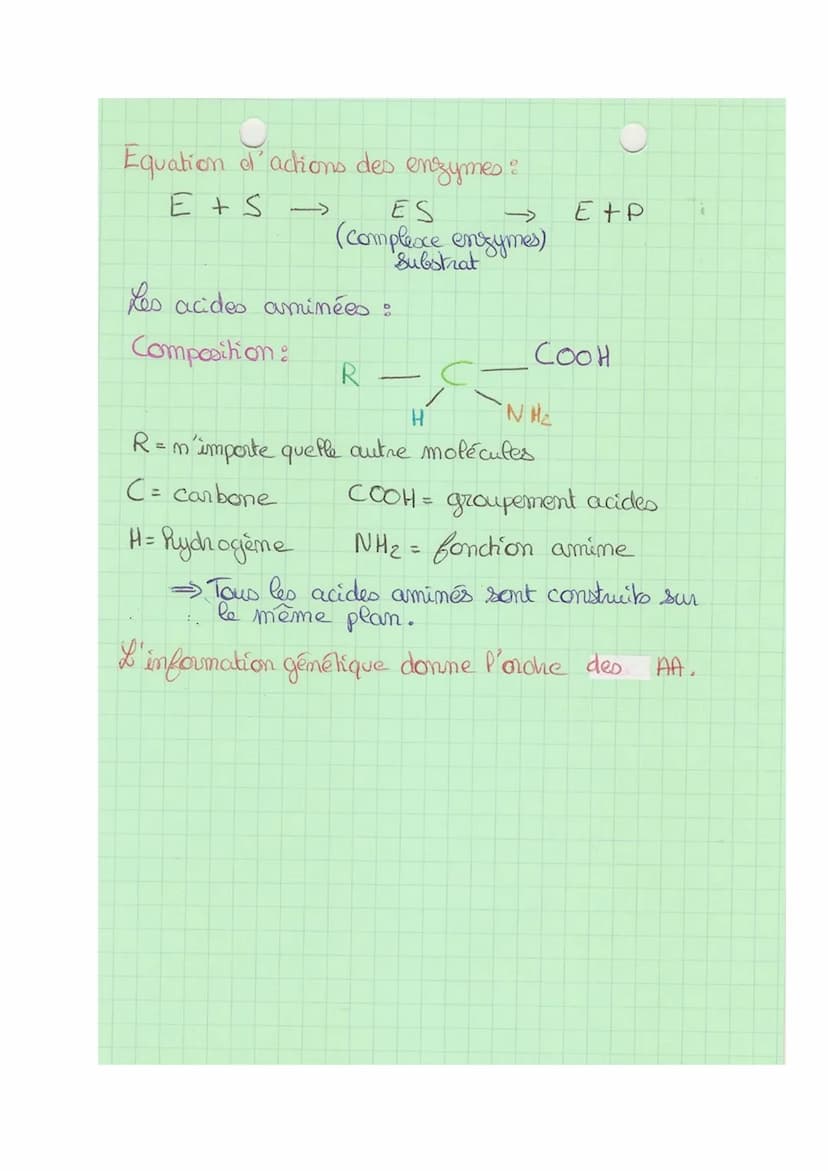 Equation d'actions des enzymes :
E + S → ES → E + P
(complexe enzymes)
substrat
Les acides aminées :
Composition :
R — C — COOH
H NH2
R = n'importe quelle autre molécules
C = carbone COOH = groupement acides
H = hydrogène NH2 = fonction amine
⇒ Tous les acides aminés sont construits sur
le même plan.
L'information génétique donne l'ordre des AA.